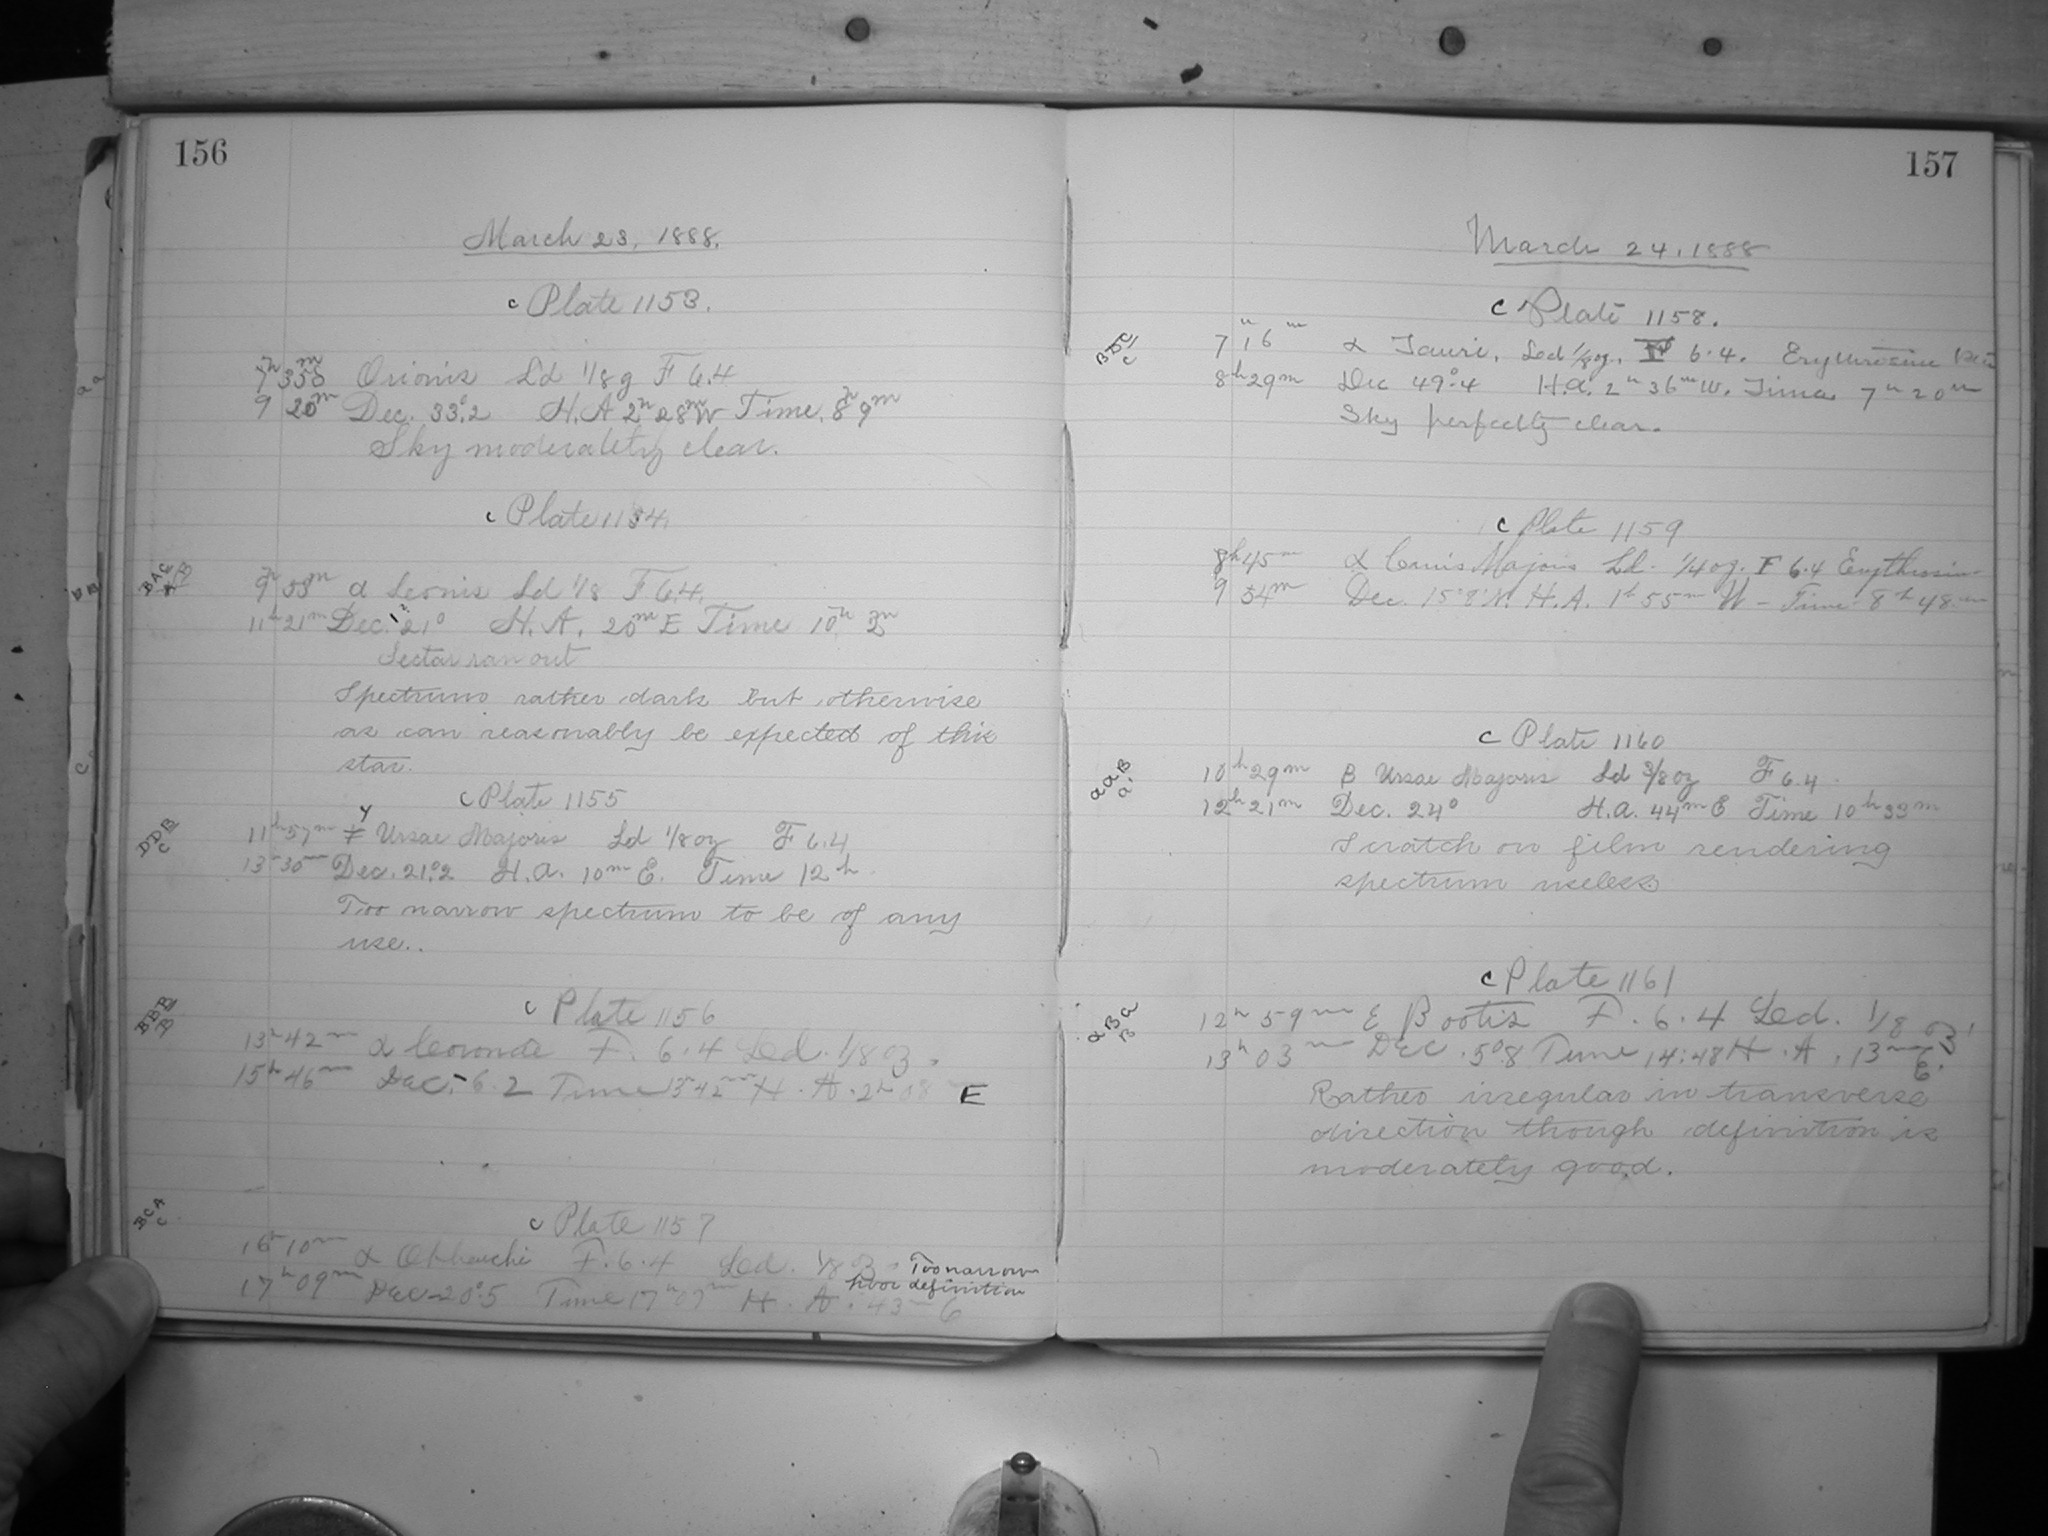 156
March 23, 1888.
c Plate 1153.
Orionis Ld 1/8 g F 6.4
9 20m Dec. 33°.2 H.A 2h 28m W Time. 8h 9m
Sky moderately clear.
c Plate 1154
BAC
9h 33m α Leonis Ld 1/8 F 6.4.
11h 21m Dec. 21° H.A. 20m E Time 10h 2m
Sector ran out
Spectrum rather dark but otherwise
as can reasonably be expected of this
star.
c Plate 1155
DDB
C
11h 57m γ Ursae Majoris Ld 1/8 oz F 6.4
13h 30m Dec. 21°.2 H.A. 10m E. Time 12h.
Too narrow spectrum to be of any
use..
c Plate 1156
BBB
B
13h 42m α Coronae F. 6.4 Led. 1/8 oz.
15h 46m Dec. -6.2 Time 13h 42m H.A. 2h 08 E
c Plate 1157
BCA
C
16h 10m α Ophiuchi F. 6.4 Led. 1/8 oz. Too narrow
poor definition
17h 09m Dec -20°.5 Time 17h 07m H.A. 43m E
157
March 24, 1888
c Plate 1158.
7h 16m α Tauri, Led 1/8 oz. F 6.4. Erythrosine
8h 29m Dec 49°.4 H.A. 2h 36m W. Time 7h 20m
Sky perfectly clear.
c Plate 1159
8h 45m α Canis Majoris Ld. 1/4 oz. F 6.4 Erythrosin
9 54m Dec. 15°8' N. H.A. 1h 55m W - Time 8h 48m
c Plate 1160
aaB
a.
10h 29m B Ursae Majoris Ld 3/8 oz F 6.4.
12h 21m Dec. 24° H.A. 44m E Time 10h 33m
Scratch on film rendering
spectrum useless
c Plate 1161
aBa
B
12h 59m ε Bootis F. 6.4 Led. 1/8 oz.
13h 03m Dec. 5°.8 Time 14:48 H.A. 13m E.
Rather irregular in transverse
direction though definition is
moderately good.